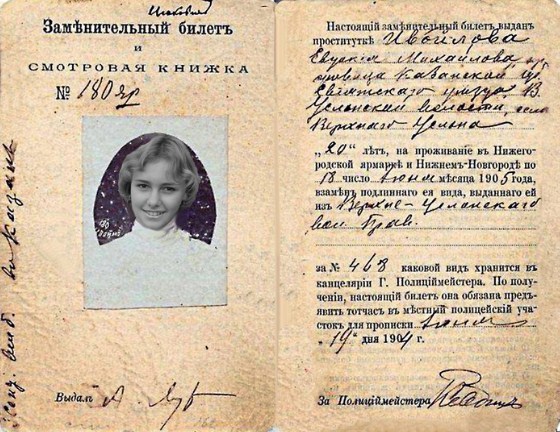 Замѣнительный билетъ
и
СМОТРОВАЯ КНИЖКА
№ 180 яр
Выдалъ
Настоящій замѣнительный билетъ выданъ
проституткѣ
Михайлова
Казанской
Свіяжскаго уѣзда В.
Услонской волости, село
Верхнаго Услона
„20“ лѣтъ, на проживаніе въ Нижего-
родской ярмаркѣ и Нижнемъ-Новгородѣ по
18 число мѣсяца 1905 года,
взамѣнъ подлиннаго ея вида, выданнаго ей
изъ Верхне-Услонскаго
вол. Прав.
за № 468 каковой видъ хранится въ
канцеляріи Г. Полиціймейстера. По полу-
ченіи, настоящій билетъ она обязана предъ-
явить тотчасъ въ мѣстный полицейскій уча-
стокъ для прописки
„19“ дня 1904 г.
За Полиціймейстера